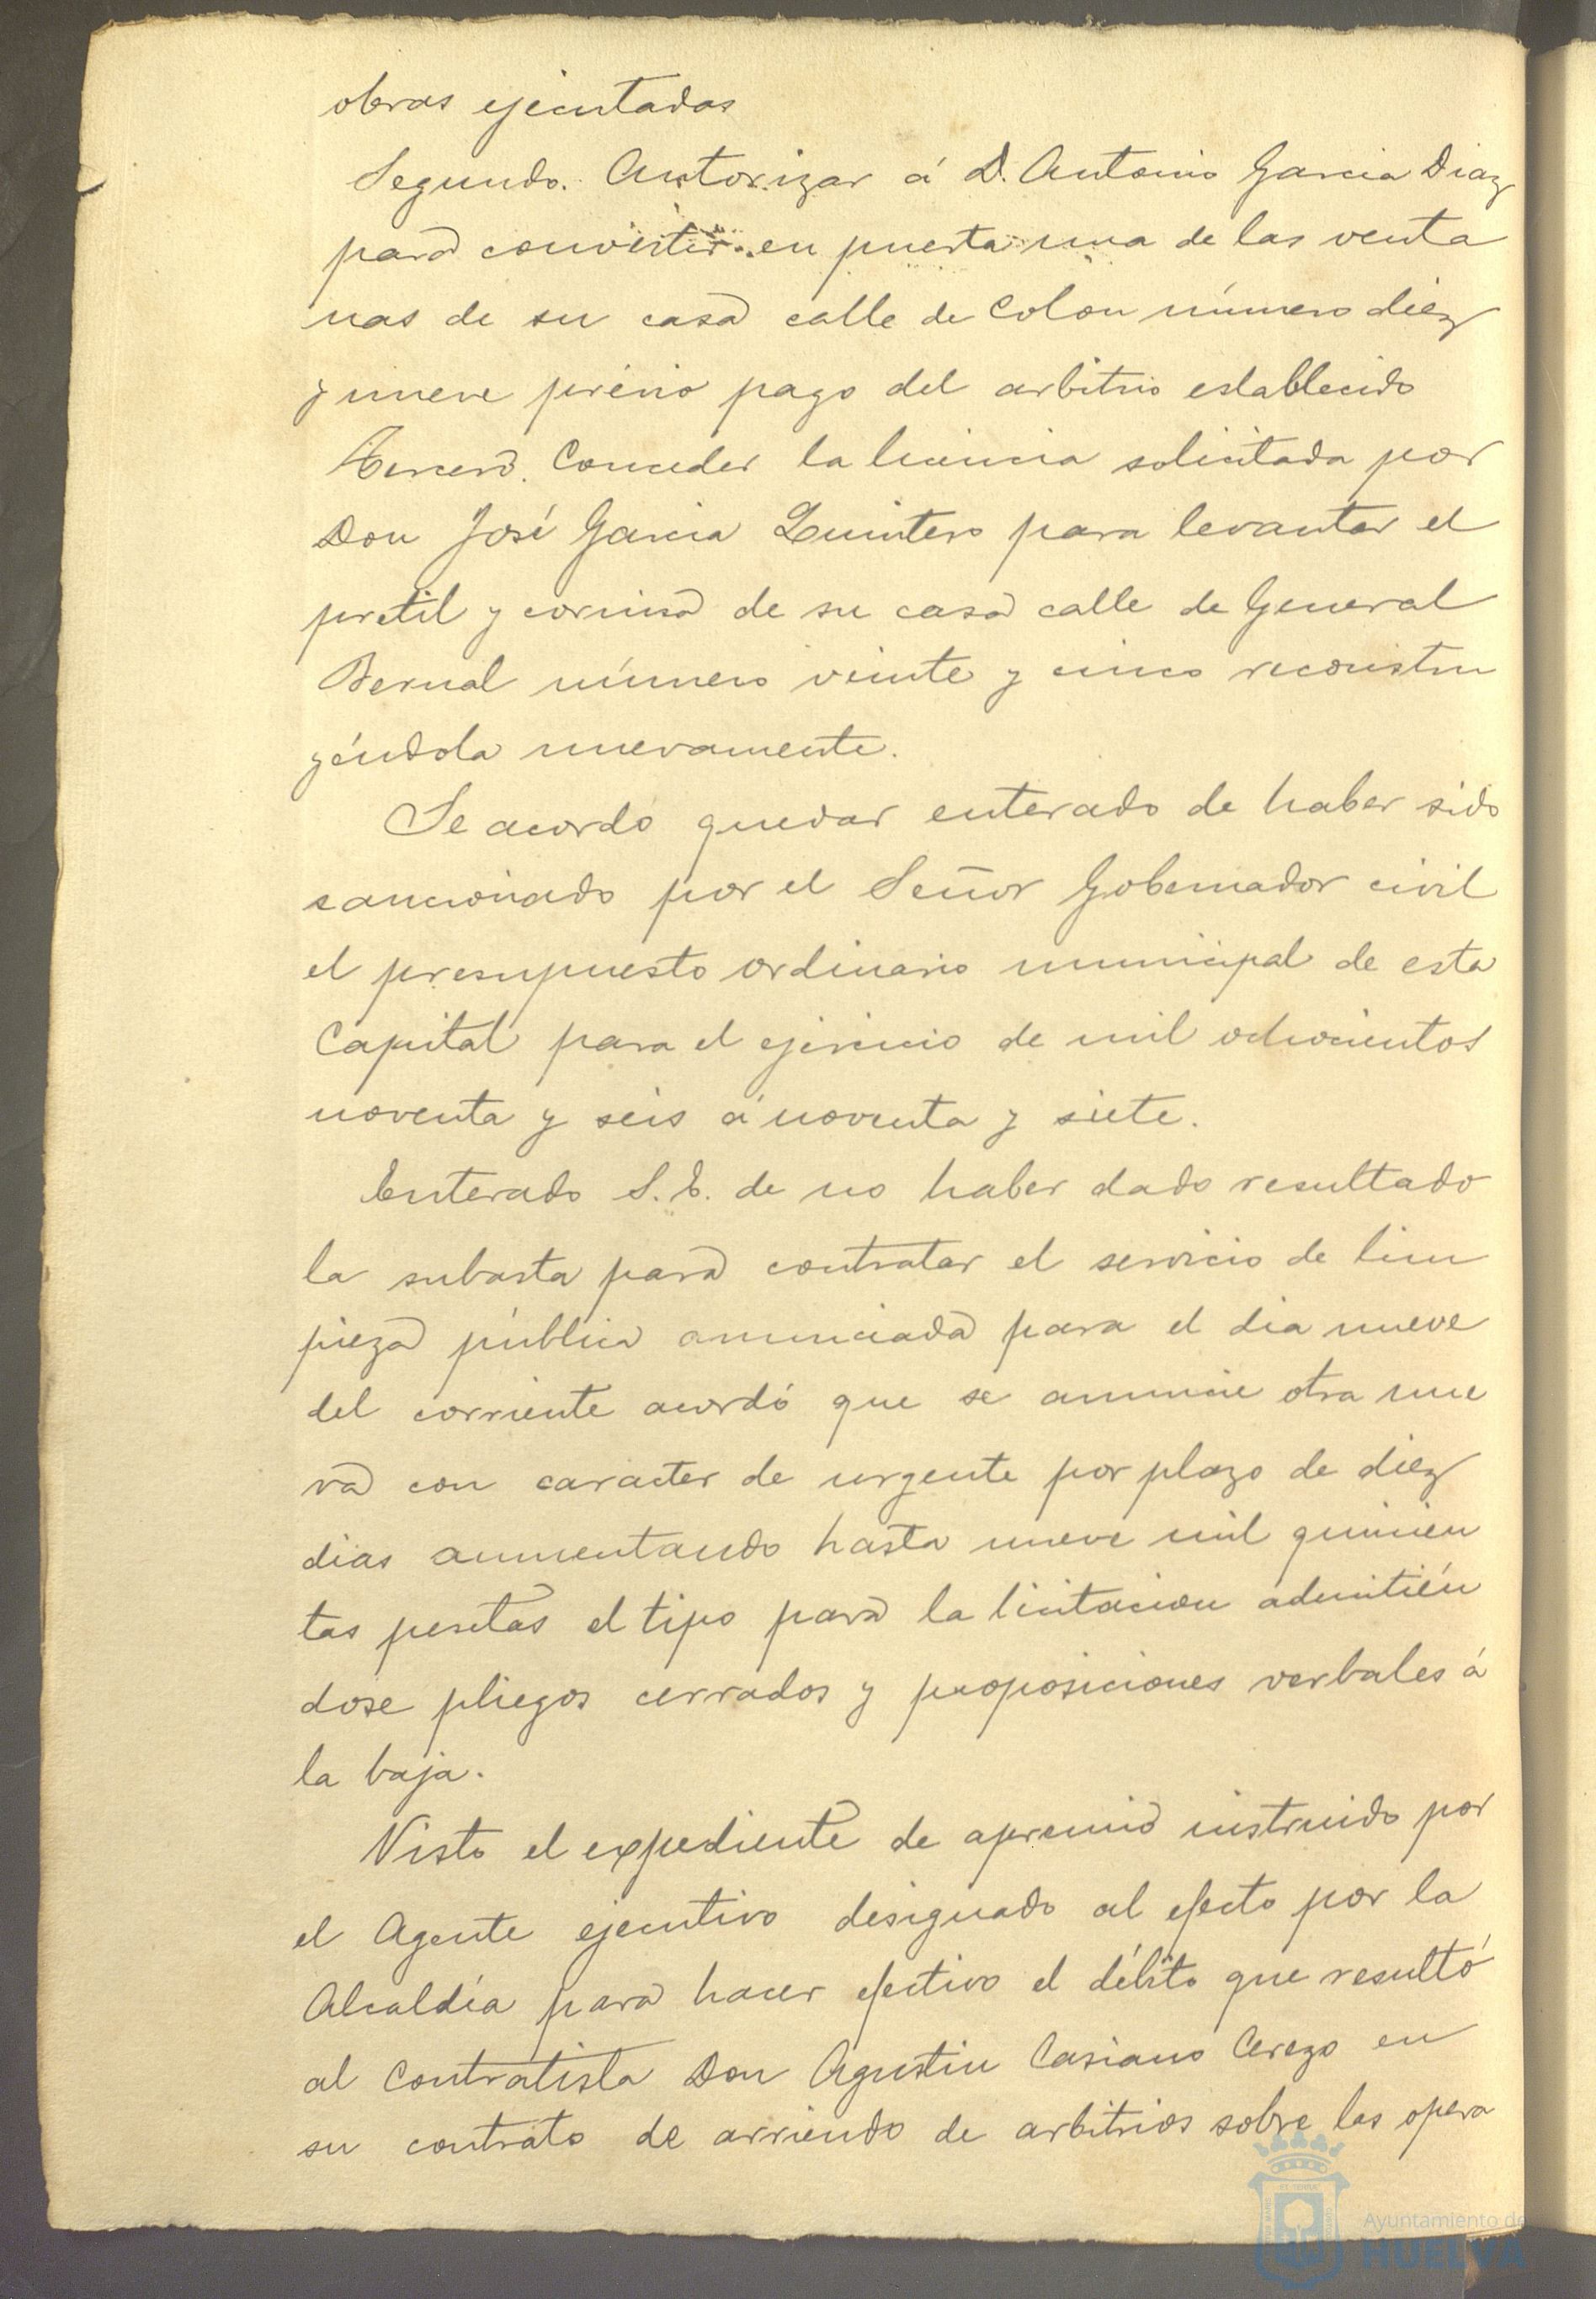 obras ejecutadas
Segundo. Autorizar á D. Antonio Garcia Diaz
para convertir en puerta una de las venta
nas de su casa calle de Colon número diez
y nueve prévio pago del arbitrio establecido
Tercero. Conceder la licencia solicitada por
Don José Garcia Quintero para levantar el
pretil y cornisa de su casa calle de General
Bernal número veinte y cinco reconstru
yéndola nuevamente.
Se acordó quedar enterado de haber sido
sancionado por el Señor Gobernador civil
el presupuesto ordinario municipal de esta
Capital para el ejercicio de mil ochocientos
noventa y seis á noventa y siete.
Enterado S. E. de no haber dado resultado
la subasta para contratar el servicio de lim
pieza pública anunciada para el dia nueve
del corriente acordó que se anuncie otra nue
va con caracter de urgente por plazo de diez
dias aumentando hasta nueve mil quinien
tas pesetas el tipo para la licitacion admitién
dose pliegos cerrados y proposiciones verbales á
la baja.
Visto el expediente de apremio instruido por
el Agente ejecutivo designado al efecto por la
Alcaldía para hacer efectivo el débito que resultó
al Contratista Don Agustin Casiano Cerezo en
su contrato de arriendo de arbitrios sobre las opera
Ayuntamiento de
HUELVA